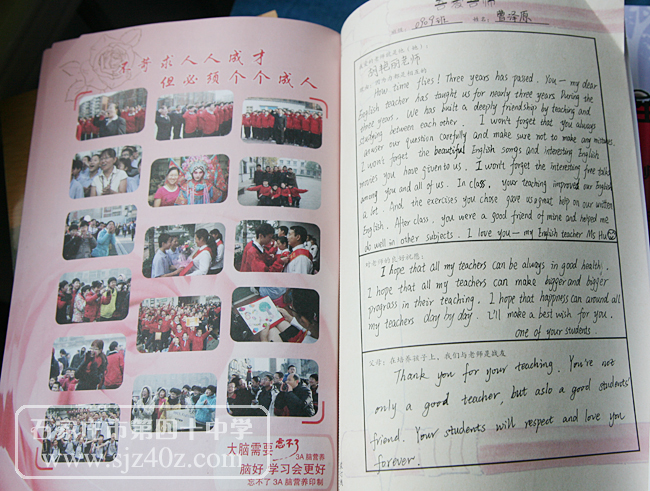 不苛求人人成才
但必须个个成人
大脑需要忘不了
3A脑营养
脑好 学习会更好
忘不了 3A脑营养印制
石家庄市第四十中学
www.sjz40z.com
班级: 0909班 姓名: 曹泽原
How time flies! Three years has passed. You — my dear
English teacher has taught us for nearly three years. During the
three years. We has built a deeply friendship by teaching and
studying between each other. I won't forget that you always
answer our question carefully and make sure not to make any mistakes.
I won't forget the beautiful English songs and interesting English
movies you have given to us. I won't forget the interesting free talks
among you and all of us. In class, your teaching improved our English
a lot. And the exercises you chose gave us a great help on our written
English. After class, you were a good friend of mine and helped me
do well in other subjects. I love you — my English teacher Ms Hu
对老师的良好祝愿:
I hope that all my teachers can be always in good health.
I hope that all my teachers can make bigger and bigger
prograss in their teaching. I hope that happiness can around all
my teachers day by day. I'll make a best wish for you.
one of your students.
父母: 在培养孩子上, 我们与老师是战友
Thank you for your teaching. You're not
only a good teacher, but aslo a good students'
friend. Your students will respect and love you
forever.